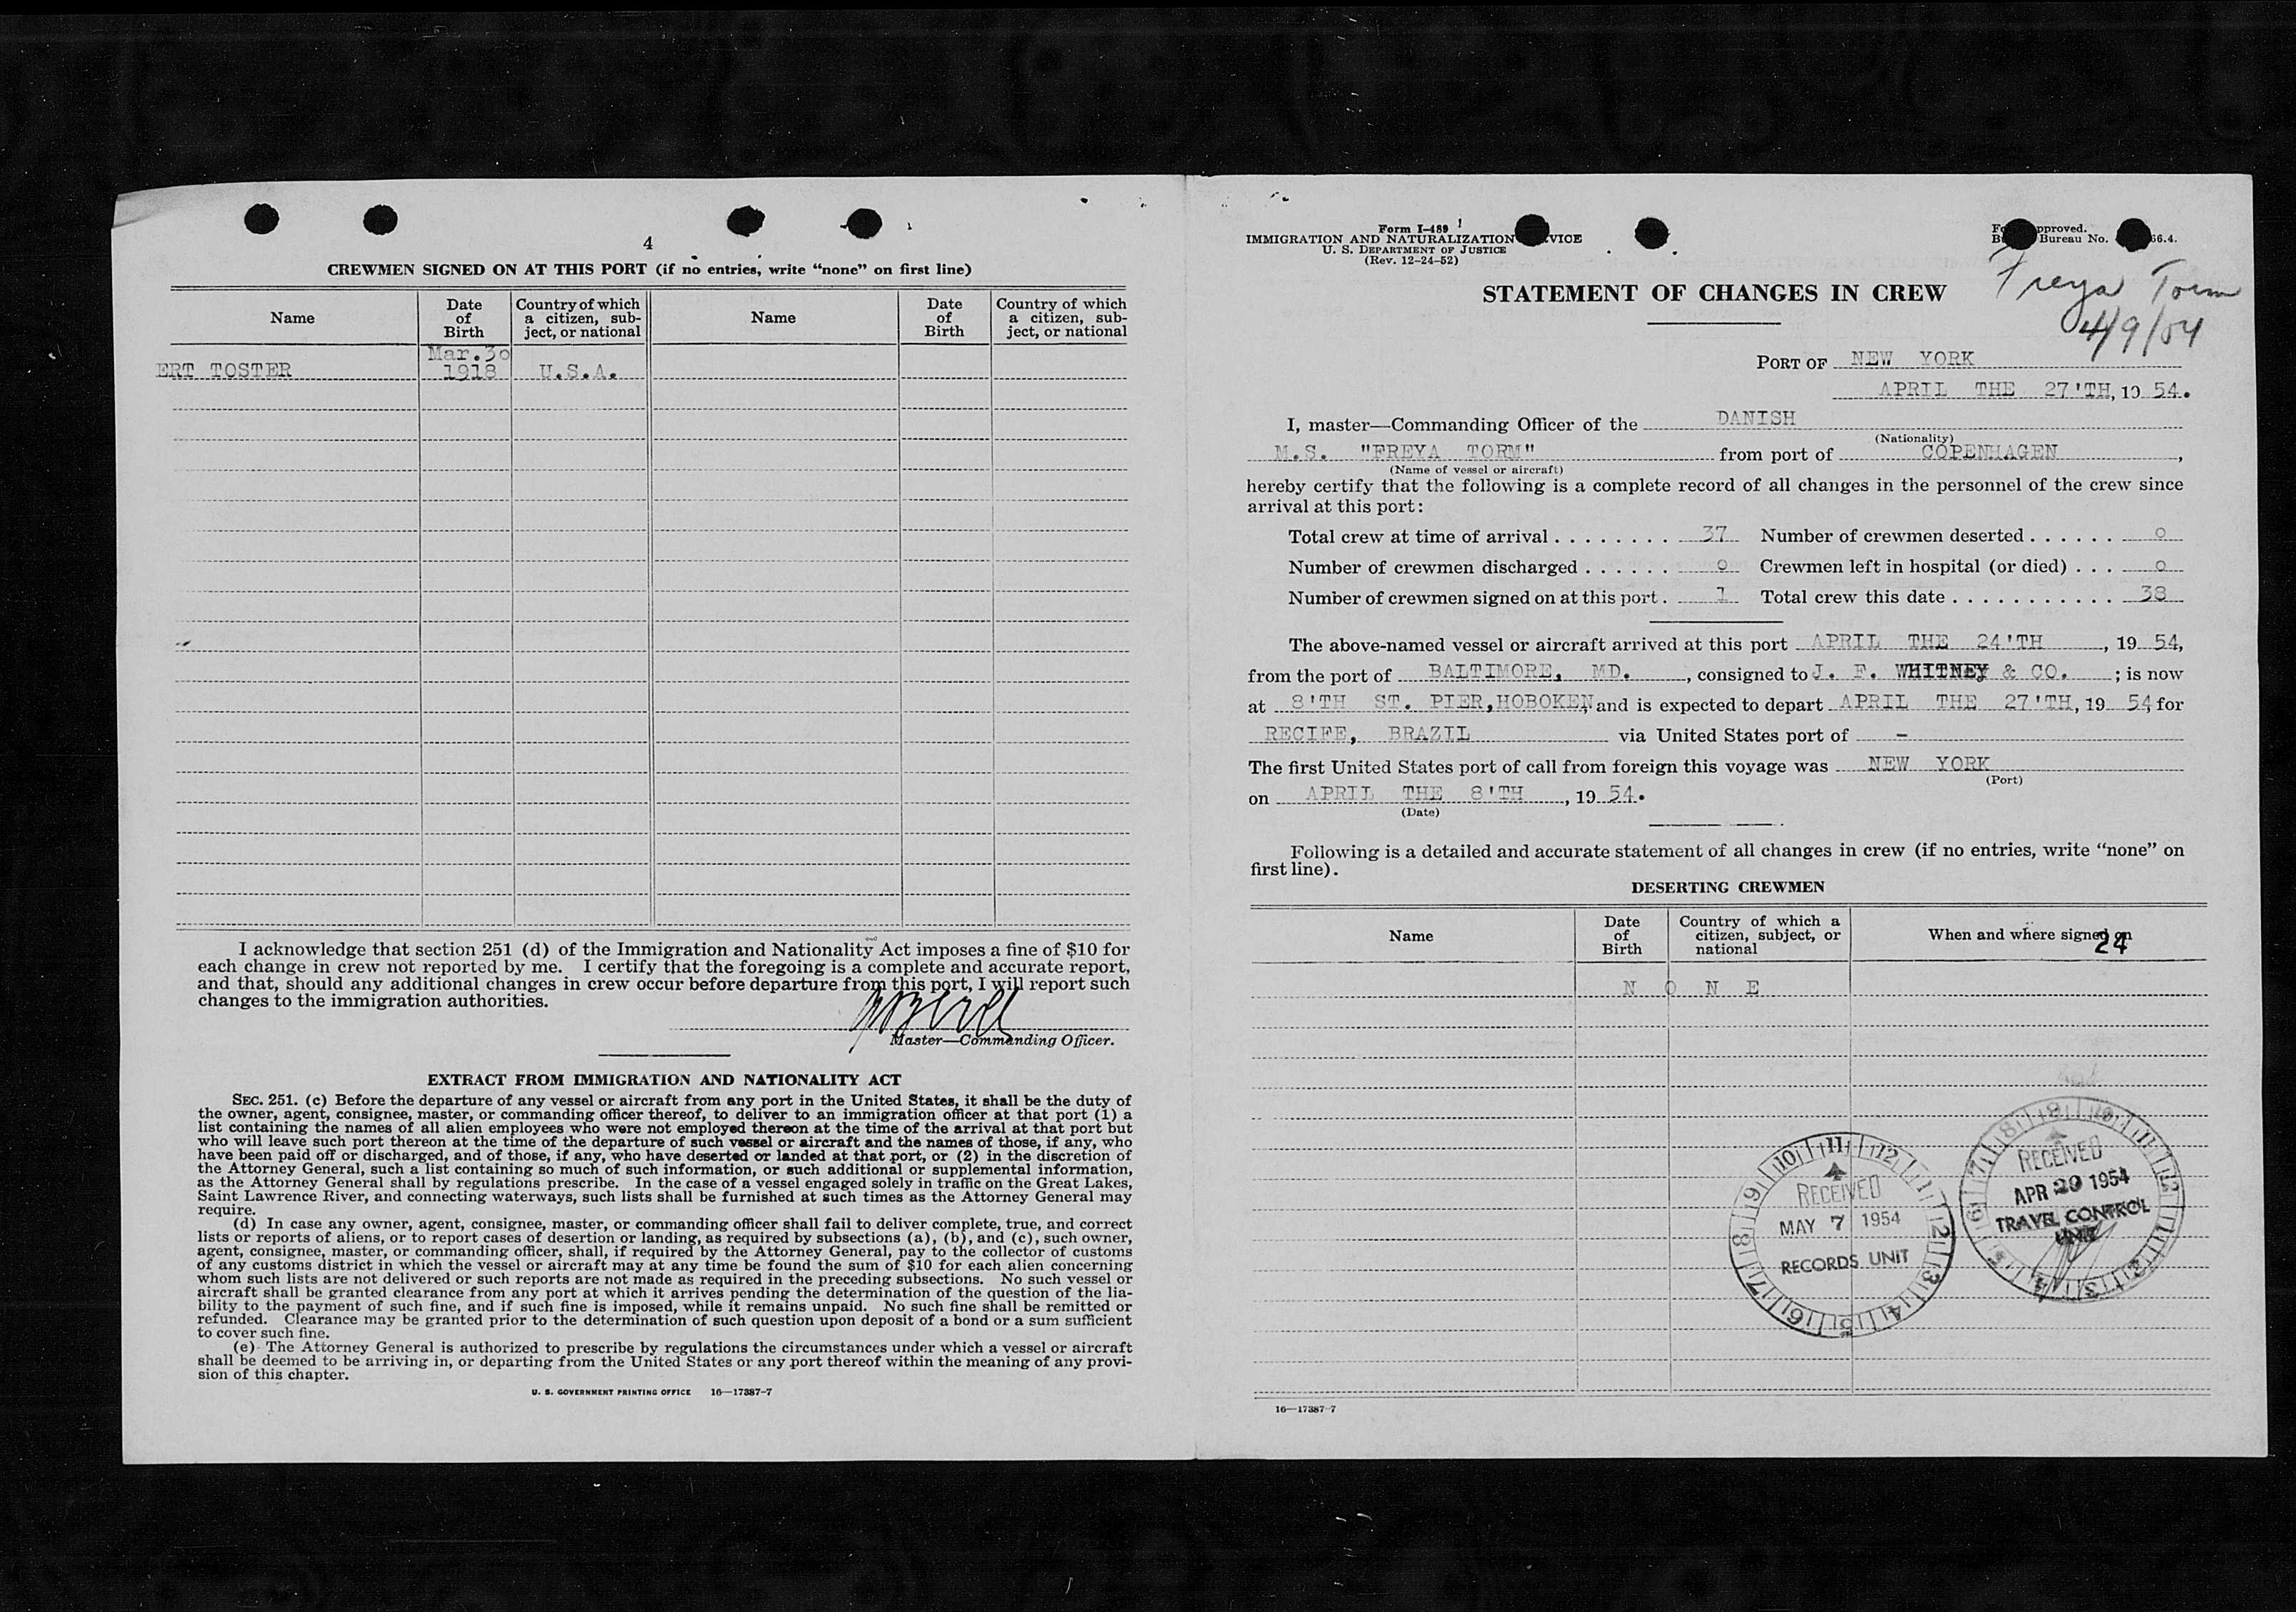 4
CREWMEN SIGNED ON AT THIS PORT (if no entries, write “none” on first line)
Name
Date of Birth
Country of which a citizen, subject, or national
Name
Date of Birth
Country of which a citizen, subject, or national
ERT TOSTER
Mar.30
1918
U.S.A.
I acknowledge that section 251 (d) of the Immigration and Nationality Act imposes a fine of $10 for
each change in crew not reported by me. I certify that the foregoing is a complete and accurate report,
and that, should any additional changes in crew occur before departure from this port, I will report such
changes to the immigration authorities.
Master—Commanding Officer.
EXTRACT FROM IMMIGRATION AND NATIONALITY ACT
SEC. 251. (c) Before the departure of any vessel or aircraft from any port in the United States, it shall be the duty of
the owner, agent, consignee, master, or commanding officer thereof, to deliver to an immigration officer at that port (1) a
list containing the names of all alien employees who were not employed thereon at the time of the arrival at that port but
who will leave such port thereon at the time of the departure of such vessel or aircraft and the names of those, if any, who
have been paid off or discharged, and of those, if any, who have deserted or landed at that port, or (2) in the discretion of
the Attorney General, such a list containing so much of such information, or such additional or supplemental information,
as the Attorney General shall by regulations prescribe. In the case of a vessel engaged solely in traffic on the Great Lakes,
Saint Lawrence River, and connecting waterways, such lists shall be furnished at such times as the Attorney General may
require.
(d) In case any owner, agent, consignee, master, or commanding officer shall fail to deliver complete, true, and correct
lists or reports of aliens, or to report cases of desertion or landing, as required by subsections (a), (b), and (c), such owner,
agent, consignee, master, or commanding officer, shall, if required by the Attorney General, pay to the collector of customs
of any customs district in which the vessel or aircraft may at any time be found the sum of $10 for each alien concerning
whom such lists are not delivered or such reports are not made as required in the preceding subsections. No such vessel or
aircraft shall be granted clearance from any port at which it arrives pending the determination of the question of the lia-
bility to the payment of such fine, and if such fine is imposed, while it remains unpaid. No such fine shall be remitted or
refunded. Clearance may be granted prior to the determination of such question upon deposit of a bond or a sum sufficient
to cover such fine.
(e) The Attorney General is authorized to prescribe by regulations the circumstances under which a vessel or aircraft
shall be deemed to be arriving in, or departing from the United States or any port thereof within the meaning of any provi-
sion of this chapter.
U. S. GOVERNMENT PRINTING OFFICE 16—17387-7
Form I-489
IMMIGRATION AND NATURALIZATION VICE
U. S. DEPARTMENT OF JUSTICE
(Rev. 12-24-52)
pproved.
Bureau No. 66.4.
Freya Torm
4/9/54
STATEMENT OF CHANGES IN CREW
PORT OF NEW YORK
APRIL THE 27'TH, 19 54.
I, master—Commanding Officer of the DANISH
(Nationality)
M.S. "FREYA TORM" from port of COPENHAGEN,
(Name of vessel or aircraft)
hereby certify that the following is a complete record of all changes in the personnel of the crew since
arrival at this port:
Total crew at time of arrival . . . . . . . . 37 Number of crewmen deserted . . . . . . 0
Number of crewmen discharged . . . . . . 0 Crewmen left in hospital (or died) . . . 0
Number of crewmen signed on at this port . 1 Total crew this date . . . . . . . . . . . 38
The above-named vessel or aircraft arrived at this port APRIL THE 24'TH, 19 54,
from the port of BALTIMORE, MD., consigned to J. F. WHITNEY & CO. ; is now
at 8'TH ST. PIER, HOBOKEN, and is expected to depart APRIL THE 27'TH, 19 54, for
RECIFE, BRAZIL via United States port of -
The first United States port of call from foreign this voyage was NEW YORK
(Port)
on APRIL THE 8'TH, 19 54.
(Date)
Following is a detailed and accurate statement of all changes in crew (if no entries, write “none” on
first line).
DESERTING CREWMEN
Name
Date of Birth
Country of which a citizen, subject, or national
When and where signed on
24
N O N E
RECEIVED
MAY 7 1954
RECORDS UNIT
11 12 1 2 3 4 5 6 7 8 9 10
RECEIVED
APR 29 1954
TRAVEL CONTROL
UNIT
16—17387-7